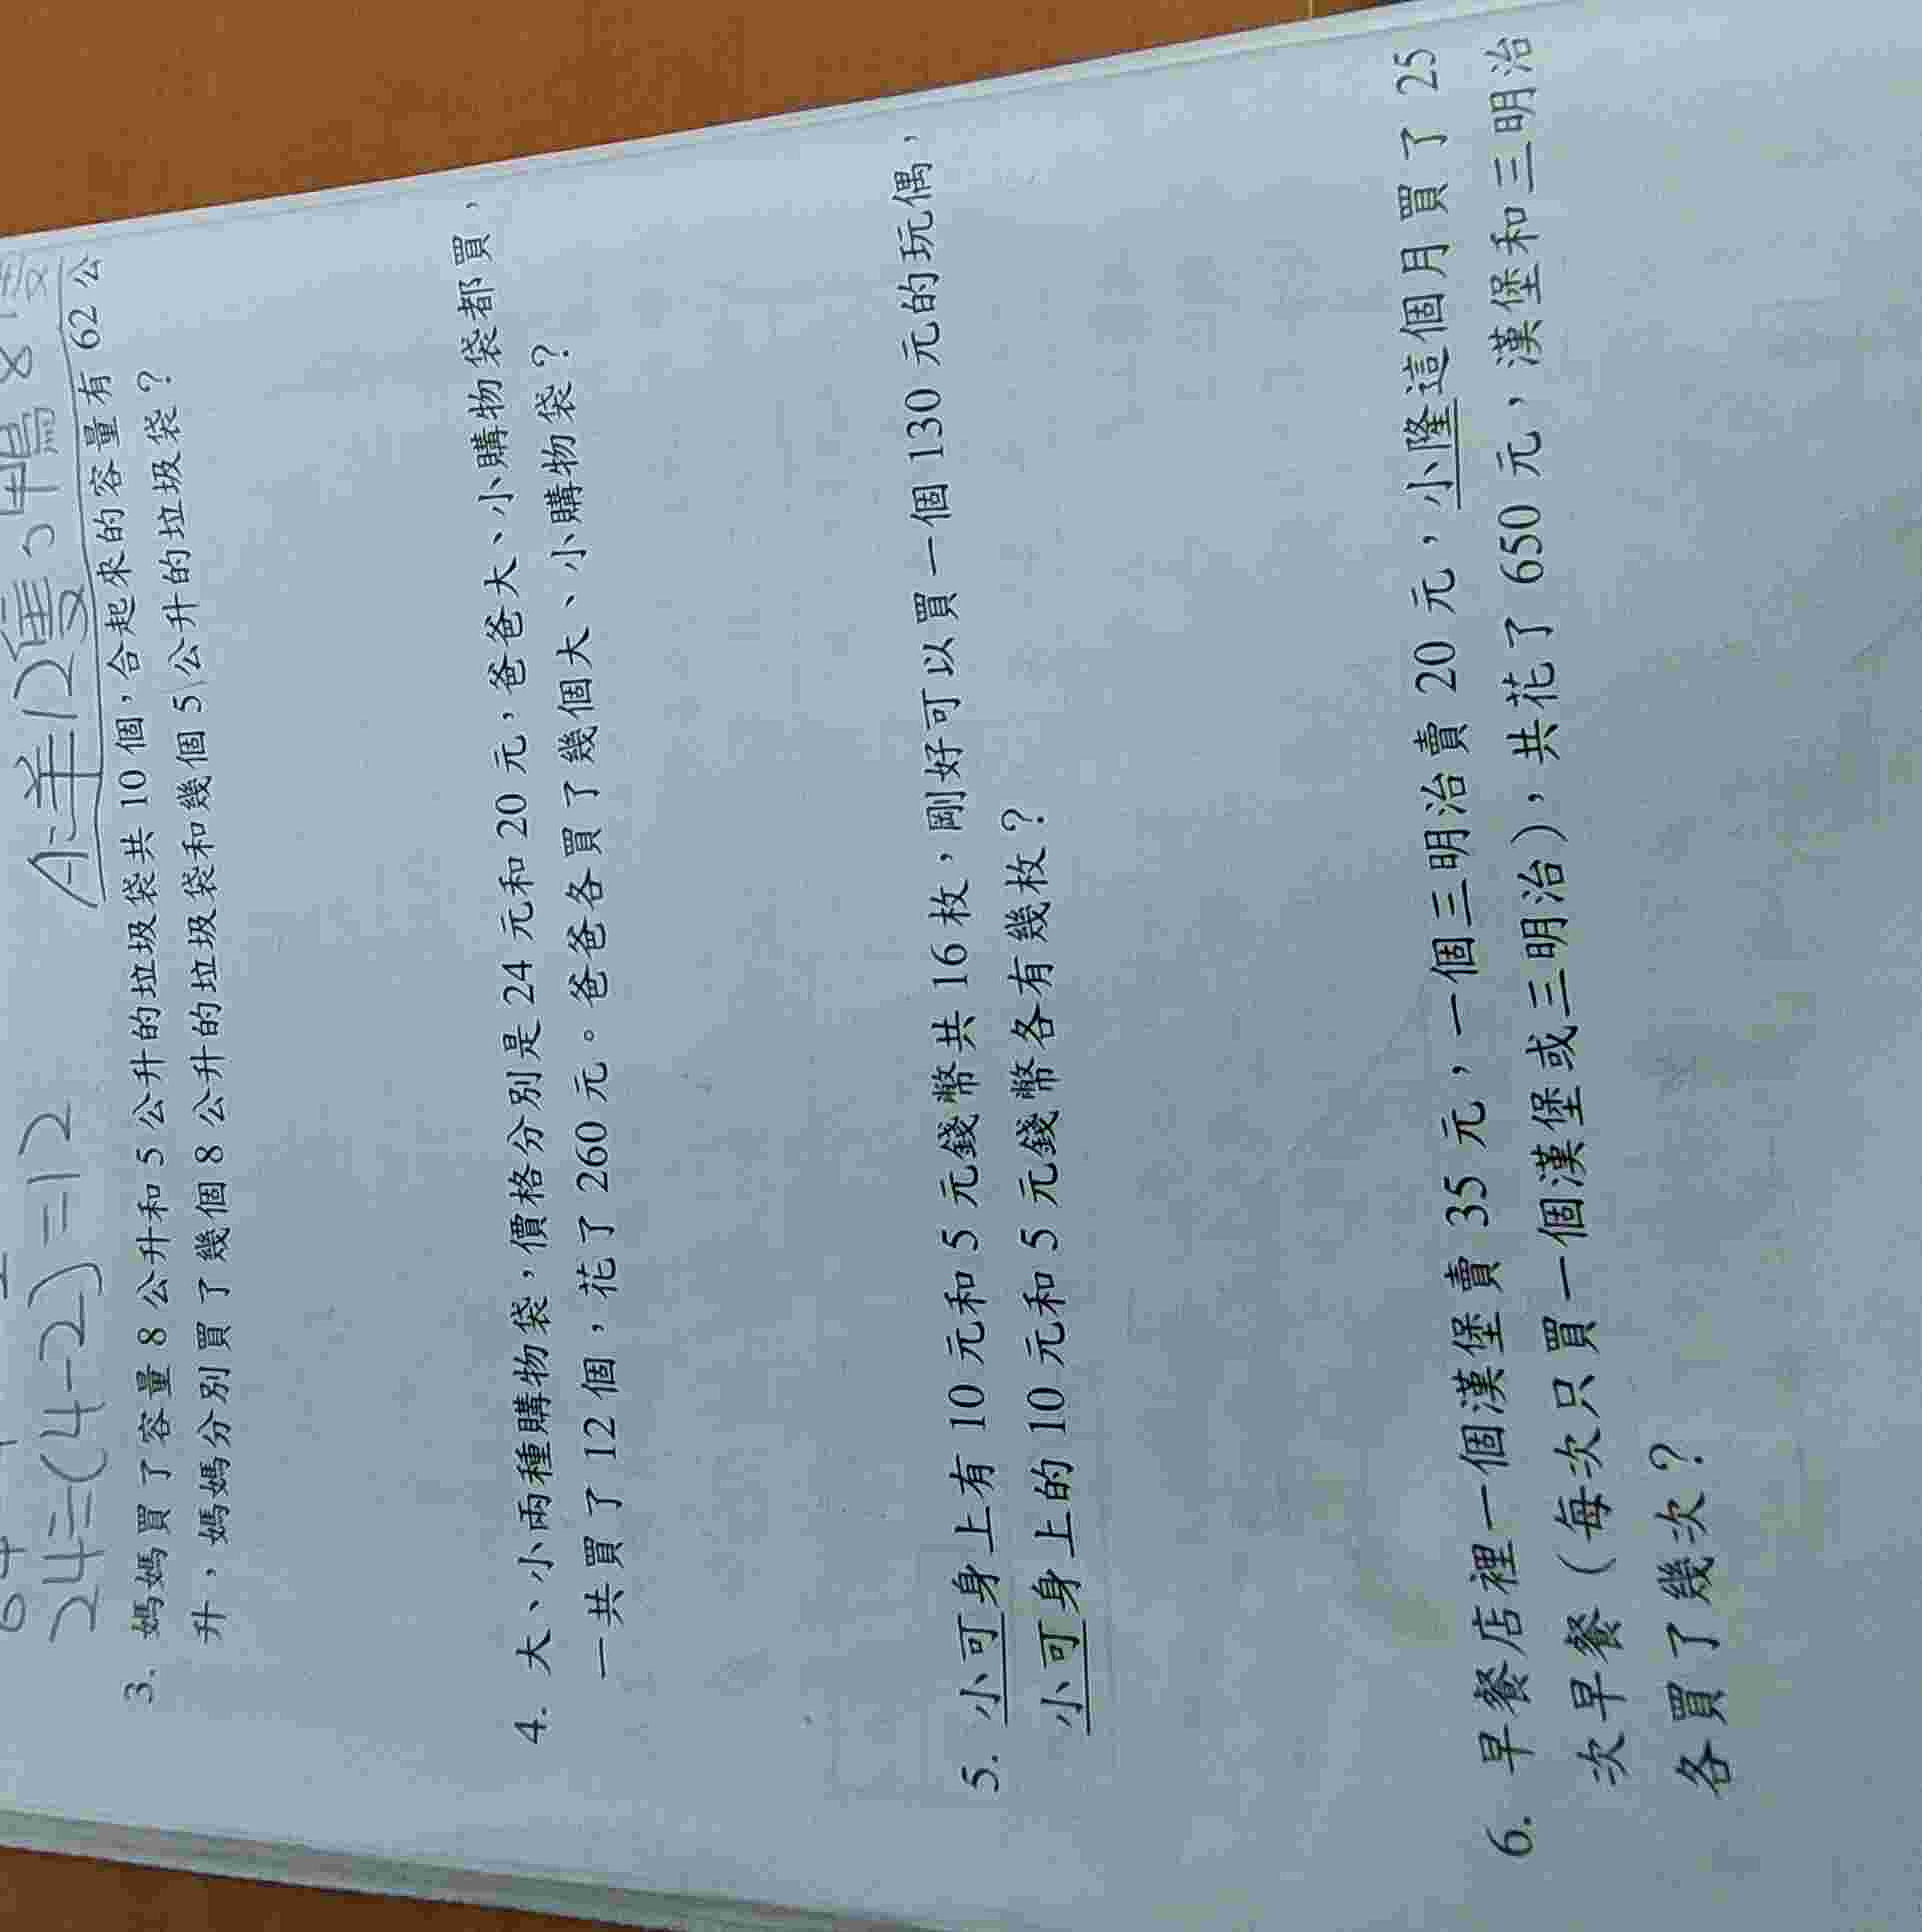 24÷(4-2)=12
A:羊12隻、鴨8隻
3. 媽媽買了容量8公升和5公升的垃圾袋共10個，合起來的容量有62公
升，媽媽分別買了幾個8公升的垃圾袋和幾個5公升的垃圾袋？
4. 大、小兩種購物袋，價格分別是24元和20元，爸爸大、小購物袋都買，
一共買了12個，花了260元。爸爸各買了幾個大、小購物袋？
5. 小可身上有10元和5元錢幣共16枚，剛好可以買一個130元的玩偶，
小可身上的10元和5元錢幣各有幾枚？
6. 早餐店裡一個漢堡賣35元，一個三明治賣20元，小隆這個月買了25
次早餐（每次只買一個漢堡或三明治），共花了650元，漢堡和三明治
各買了幾次？